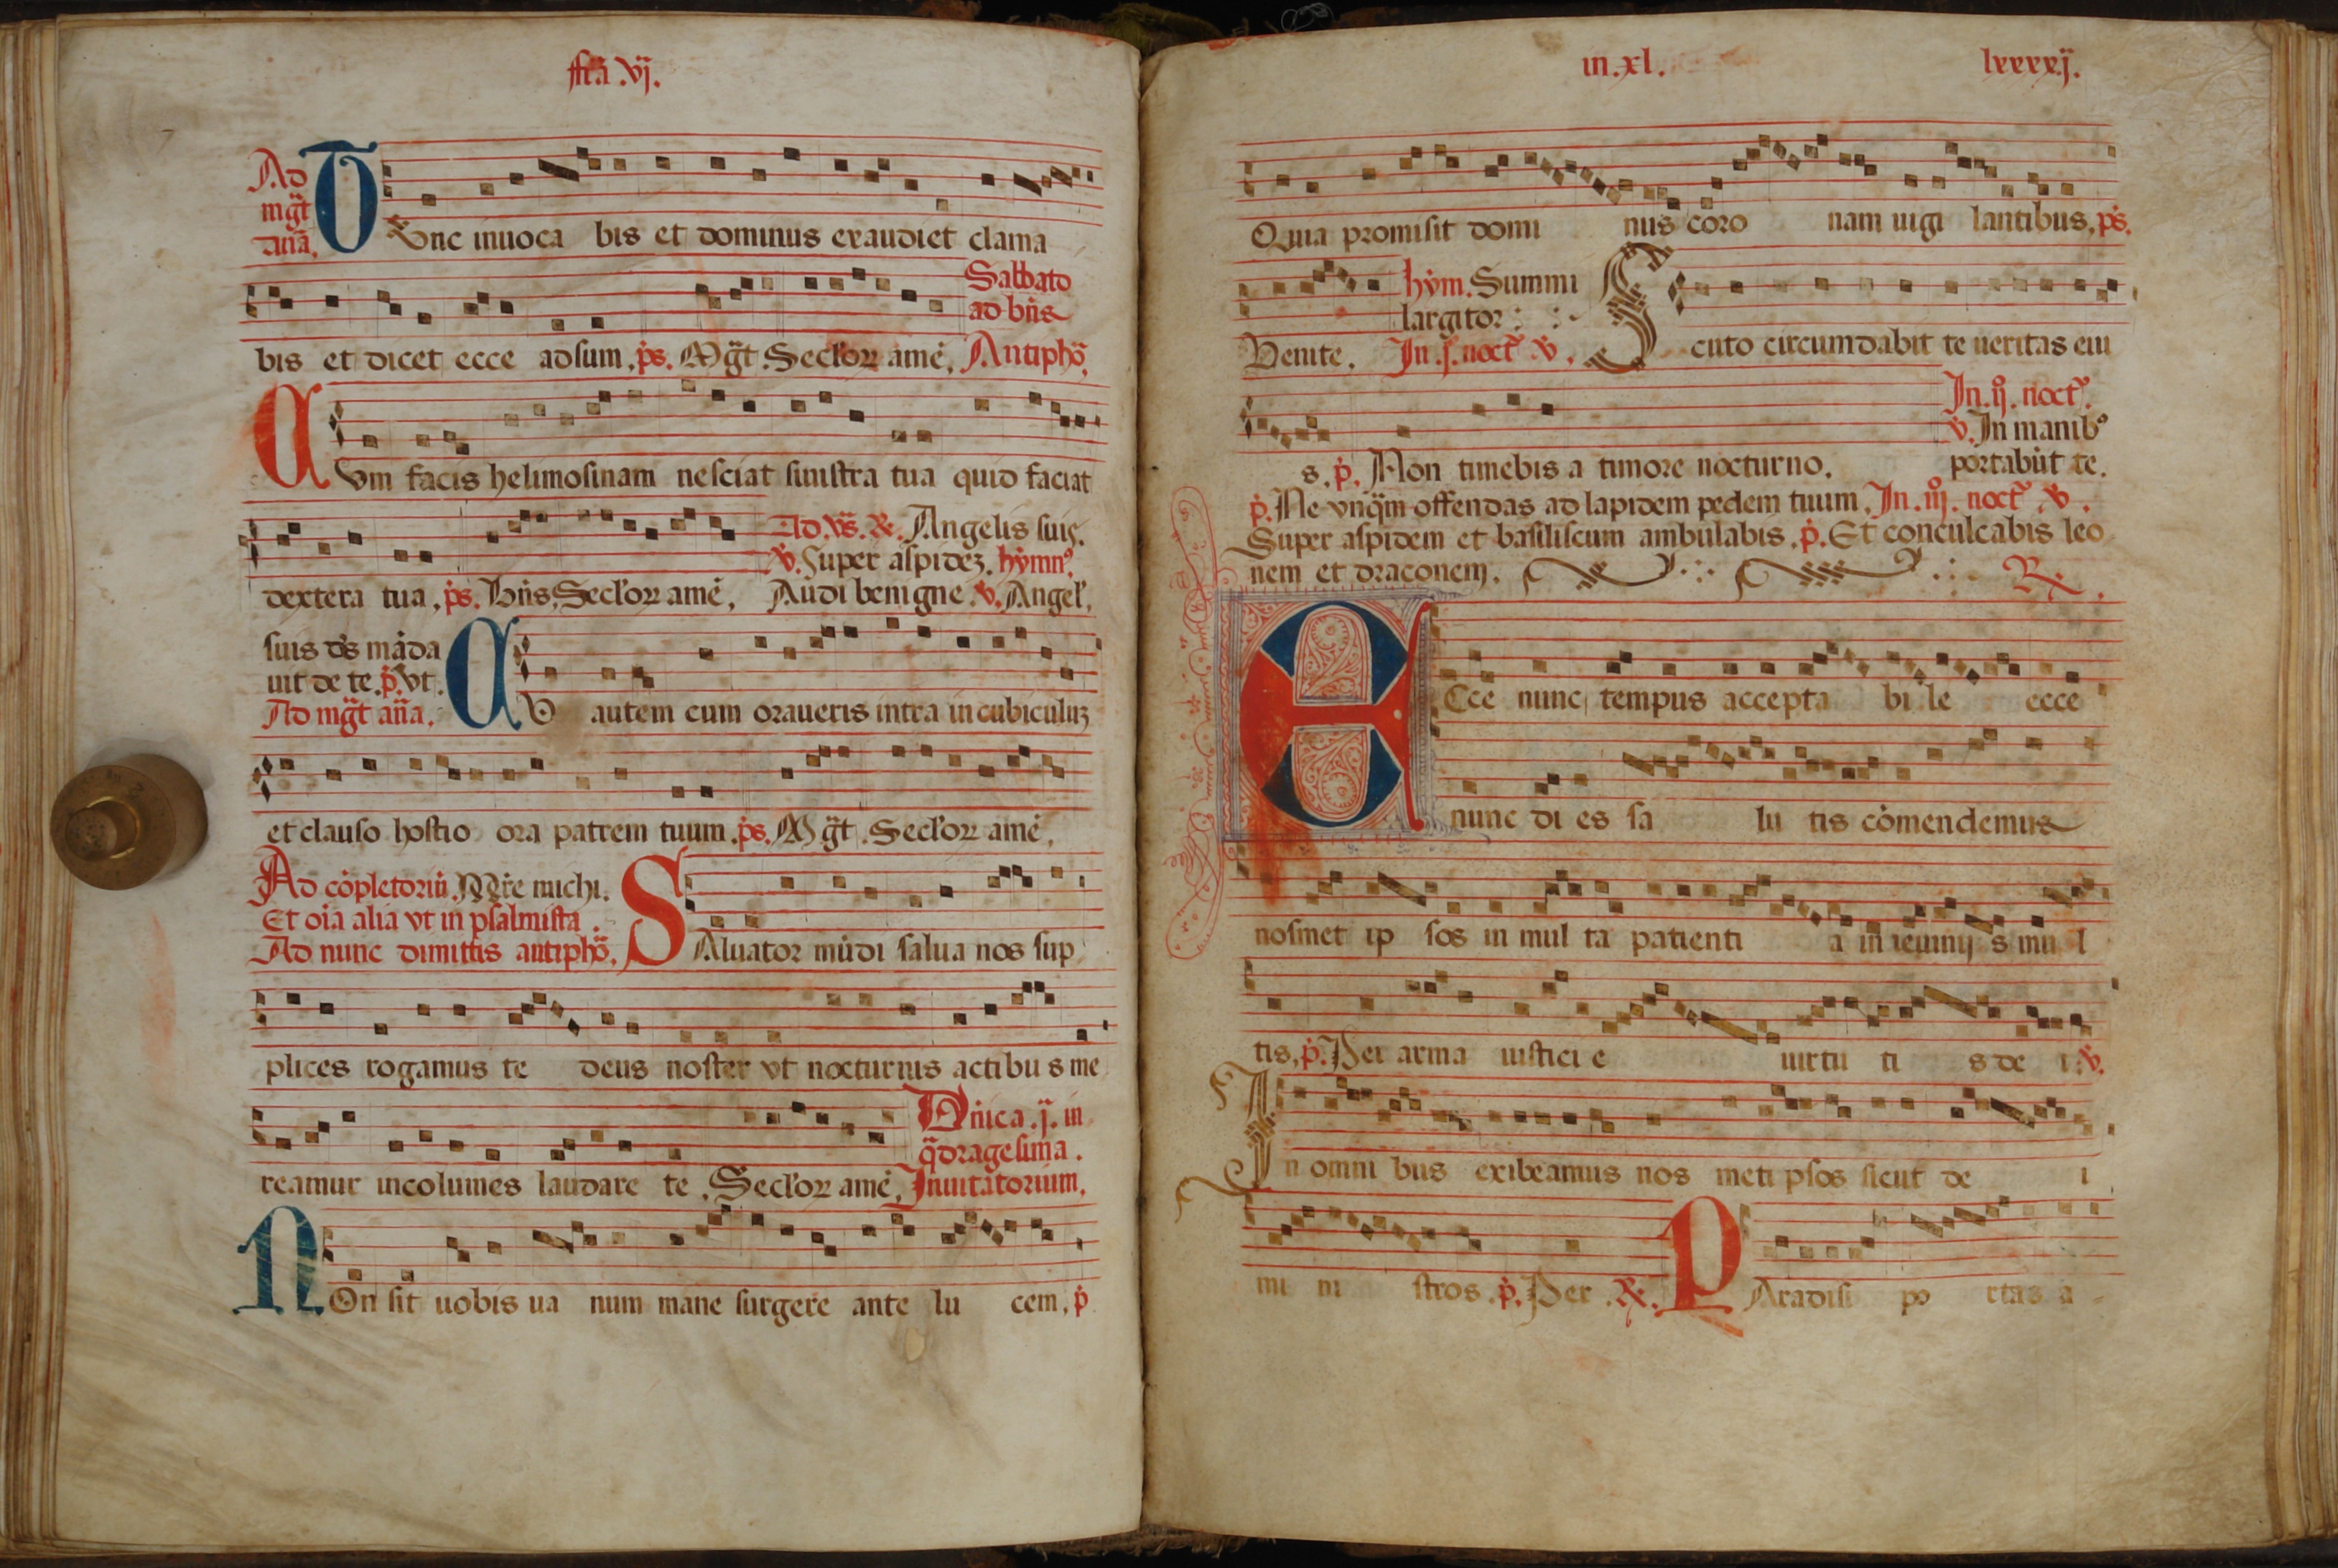 fr̃a .vj.
Ad
mg̃t
an̄a.
Tunc inuoca bis et dominus exaudiet clama
Sabbato
ad bn̄s
bis et dicet ecce adsum. p̄s. Mg̃t. Seclor amē. Antiphō.
Cum facis helimosinam nesciat sinistra tua quid faciat
Ad. vs̄. R. Angelis suis.
v. Super aspidez. hymn9.
dextera tua. p̄s. Bn̄s. Seclor amē. Audi benigne. v. Angel.
suis d's māda
uit de te. p̄. vt.
Ad mg̃t an̄a.
Tu autem cum oraueris intra in cubiculuz
et clauso hostio ora patrem tuum. p̄s. Mg̃t. Seclor amē.
Ad cōpletoriū. Mr̄e michi.
Et oīa alia vt in psalmista.
Ad nunc dimittis antiphō.
Saluator mūdi salua nos sup
plices rogamus te deus noster vt nocturnis actibu s me
Dn̄ica .j. in
q̄dragesima.
reamur incolumes laudare te. Seclor amē. Inuitatorium.
NOn sit uobis ua num mane surgere ante lu cem. p̄
in .xl. lxxxxj.
Quia promisit domi nus coro nam uigi lantibus. p̄s.
hym. Summi
largitor
Venite. In .j. noct. v. Scuto circumdabit te ueritas eiu
In .ij. noct.
v. In manib9
s. p̄. Non timebis a timore nocturno. portabūt te.
p̄. Ne vnq̄m offendas ad lapidem pedem tuum. In .iij. noct. v.
Super aspidem et basiliscum ambulabis. p̄. Et conculcabis leo
nem et draconem. R.
ECce nunc tempus accepta bi le ecce
nunc di es sa lu tis cōmendemus
nosmet ip sos in mul ta patienti a in ieiunij s mu l
tis. p̄. Per arma iusticie uirtu ti s de i. v.
In omni bus exibeamus nos meti psos sicut de i
mi ni stros. p̄. Per. R. PAradisi po rtas a